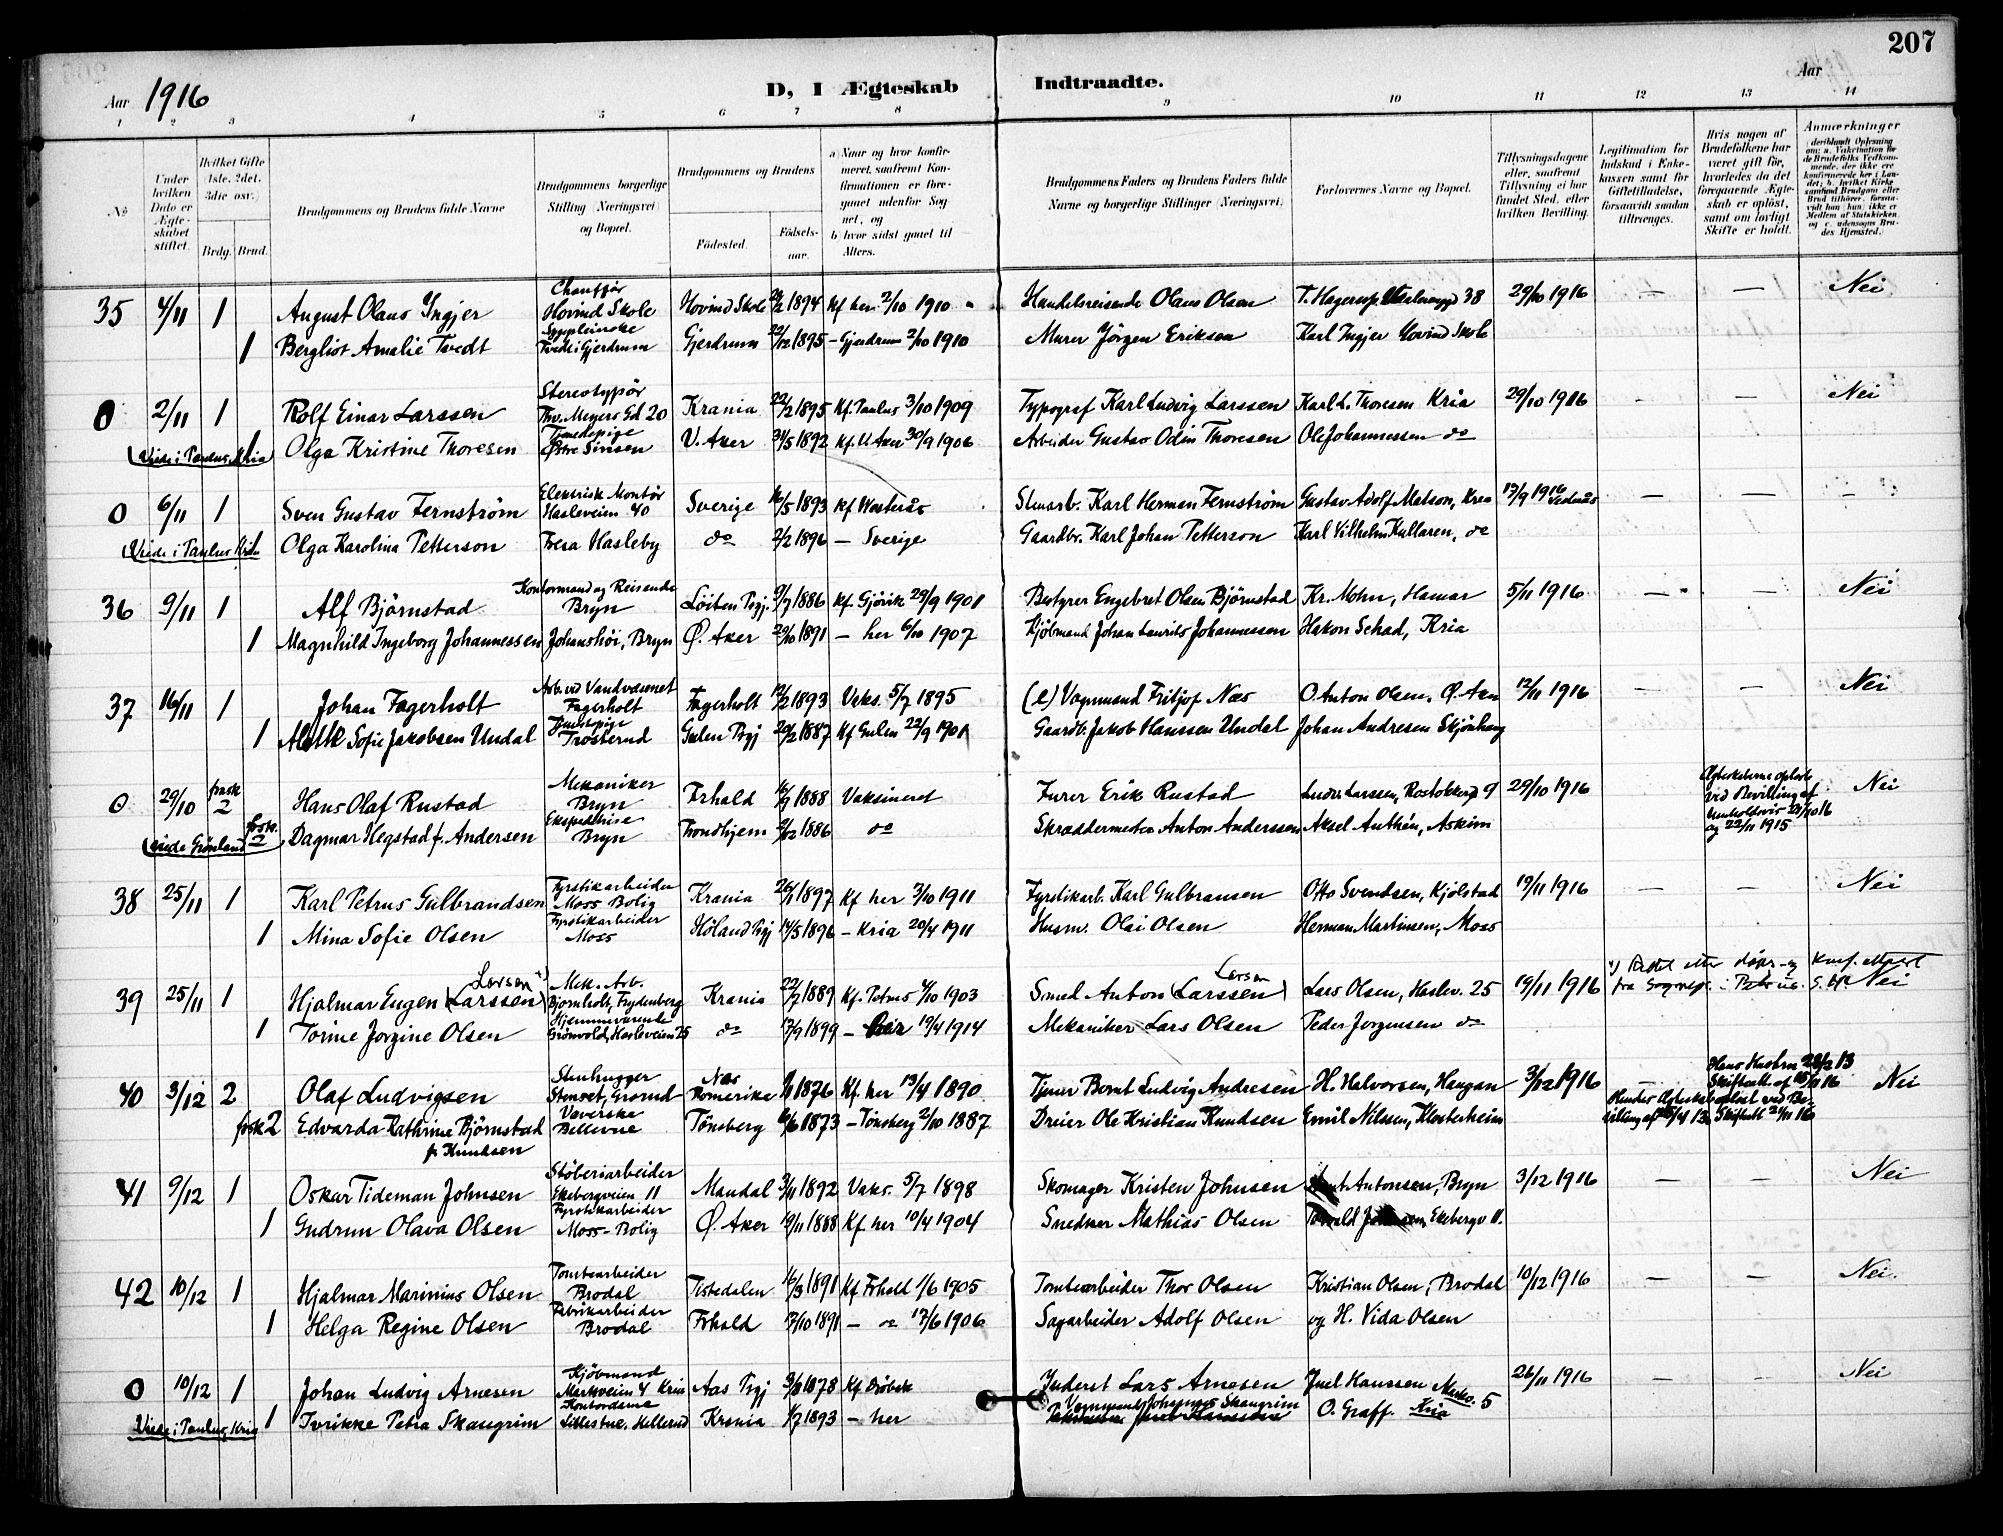 207
Aar 1916 D, I Ægteskab Indtraadte. Aar
1 2 3 4 5 6 7 8 9 10 11 12 13 14
No
Under hvilken Dato er Ægteskabet stiftet.
Hvilket Gifte (1ste, 2det, 3die osv.)
Brdg. Brud.
Brudgommens og Brudens fulde Navne
Brudgommens borgerlige Stilling (Næringsvei) og Bopæl.
Brudgommens og Brudens
Födested. Födselsaar.
a) Naar og hvor konfirmeret, saafremt Konfirmationen er foregaaet udenfor Sognet, og
b) hvor sidst gaaet til Alters.
Brudgommens Faders og Brudens Faders fulde Navne og borgerlige Stillinger (Næringsvei)
Forlovernes Navne og Bopæl.
Tillysningsdagene eller, saafremt Tillysning ei har fundet Sted, efter hvilken Bevilling.
Legitimation for Indskud i Enkekassen samt for Giftetilladelse, forsaavidt saadan tiltrænges.
Hvis nogen af Brudefolkene har været gift för, hvorledes da det foregaaende Ægteskab er oplöst, samt om lovligt Skifte er holdt.
Anmærkninger
(deriblandt Oplysning om: a. Vakcination for de Brudefolks Vedkommende, der ikke ere konfirmerede her i Landet; b. hvilket Kirkesamfund Brudgom eller Brud tilhörer, forsaavidt han (hun) ikke er Medlem af Statskirken, og c. udensogns Brudes Hjemsted.)
35 4/11 1 August Olaus Ingjer Chaufför Hovind Skole Hovind Skole 1894 Kf her 2/10 1910 Handelsreisende Olaus Olsen T. Hagerup 38 29/10 1916 — — Nei
1 Bergliot Amalie Tvedt Sypleierske Tvedt i Gjerdrum Gjerdrum 22/12 1895 – Gjerdrum 2/10 1910 Murer Jörgen Eriksen Karl Ingjer Hovind Skole
0 2/11 1 Rolf Einar Larssen Stereotypör Thv. Meyers Gd 20 Krania 22/2 1895 Kf. Paulus 3/10 1909 Typograf Karl Ludvig Larssen Karl L. Thoresen Kria 29/10 1916 — — Nei
(Viede i Paulus, Kria 1 Olga Kristine Thoresen Tjenestepige Østre Sinsen V. Aker 31/5 1892 Kf. V. Aker 30/9 1906 Arbeider Gustav Odin Thoresen Ole Johannessen do
0 6/11 1 Sven Gustav Fernström Elektrisk Montör Hasleveien 40 Sverige 16/5 1893 Kf Westerås Stenarb. Karl Herman Fernström Gustav Adolf Matson, Kria 17/9 1916 — — –
(Viede i Paulus Kria Olga Karolina Petterson Hasleby do 2/2 1896 — Sverige Gaardbr. Karl Johan Petterson Karl Vilhelm Kullaren, do
36 9/11 1 Alf Björnstad Kontormand og Reisende Bryn Löiten Pgj. 9/7 1886 Kf. Gjövik 29/9 1901 Bestyrer Engebret Olsen Björnstad Kr. Mohn, Hamar 5/11 1916 — — Nei
1 Magnhild Ingeborg Johannessen Johanshöi, Bryn Ø. Aker 29/10 1891 — her 6/10 1907 Kjöbmand Johan Laurits Johannessen Hakon Schad, Kria
37 16/11 1 Johan Fagerholt Arb. ved Vandvæsenet Fagerholt Fagerholt 12/2 1893 Vaks. 5/7 1895 (e) Vognmand Fritjof Næs O. Anton Olsen, Ø. Aker 12/11 1916 — — Nei
1 Sofie Jakobsen Undal Tjenestepige Trosterud Gulen Pgj 20/2 1887 Kf Gulen 22/9 1901 Gaardb. Jakob Hanssen Undal Johan Andresen Skjönhaug
0 29/10 frask 2 Hans Olaf Rustad Mekaniker Bryn Frhald 16/9 1888 Vaksineret Furer Erik Rustad Larssen, Rostokkerg 9 29/10 1916 Ægteskaberne oplöste ved Bevilling af 21/10 16 og 22/11 1915 Nei
(viede Grönland) frask. 2 Dagmar Hegstad f. Andersen Ekspeditrise Bryn Trondhjem 2/12 1886 do Skræddermester Anton Anderssen Aksel Anthén, Askim
38 25/11 1 Karl Petrus Gulbrandsen Fyrstikarbeider Moss Bolig Krania 26/1 1897 Kf her 3/10 1911 Fyrstikarb. Karl Gulbransen Otto Svendsen, Kjölstad 19/11 1916 — — Nei
1 Mina Sofie Olsen Fyrstikarbeider Moss Höland Pgj 14/5 1896 – Kria 20/4 1911 Husm. Olai Olsen Herman Martinsen, Moss
39 25/11 1 Hjalmar Eugen (Larssen) Larsen Mek. Arb. Bjørnholt, Frydenberg Krania 22/7 1889 Kf. Petrus 4/10 1903 Smed Anton (Larssen) Larsen Lars Olsen, Haslev. 25 19/11 1916 Rettet etter døps- og konf. attest fra Sognepr. i Petrus Nei
1 Torine Jorgine Olsen Hjemmeværende Grönvold, Hasleveien 25 do 17/9 1899 — her 19/4 1914 Mekaniker Lars Olsen Peder Jorgensen do
40 3/12 2 Olaf Ludvigsen Stenhugger Stenset, Grorud Nes Romerike 1876 Kf. her 13/4 1890 Tjener Bernt Ludvig Andresen H. Halvorsen, Haugan 3/12 1916 Hans Hustru 13 Skifteatt af 16 Nei
frask 2 Edvarda Kathrine Björnstad f. Knudsen Væverske Bellevue Tönsberg 1873 – Tönsberg 2/10 1887 Dreier Ole Kristian Knudsen Emil Nilssen, Klosterheim Hendes Ægteskab oplöst ved Bevilling af 13, Skifteatt 2/11 16
41 9/12 1 Oskar Tideman Johnsen Stöberiarbeider Ekebergveien 11 Mandal 3/11 1892 Vaks. 5/7 1898 Skomager Kristen Johnsen Antonsen, Bryn 3/12 1916 — — Nei
1 Gudrun Olava Olsen Fyrstikarbeider Moss-Bolig Ø. Aker 19/11 1888 Kf her 10/4 1904 Snedker Mathias Olsen Torvald Johnsen, Ekebergv 11.
42 10/12 1 Hjalmar Marinius Olsen Tomtearbeider Brodal Tistedalen 16/3 1891 Kf Frhald 1/6 1905 Tomtearbeider Thor Olsen Kristian Olsen, Brodal 10/12 1916 — — Nei.
1 Helga Regine Olsen Fabrikarbeider Brodal Frhald 7/10 1891 — do 17/6 1906 Sagarbeider Adolf Olsen og H. Vida Olsen
0 10/12 1 Johan Ludvig Arnesen Kjöbmand Markveien 4 Kria Aas Pgj 1878 Kf Dröbak Inderst Lars Arnesen Juel Hanssen Markv. 5 26/11 1916 — — Nei
Viede i Paulus, Kria 1 Ivrikke Petra Skaugrim Kontordame Lillestue, Hellerud Krania 1/7 1893 — her Vognmand Johannes Skaugrim O. Graff. Kria